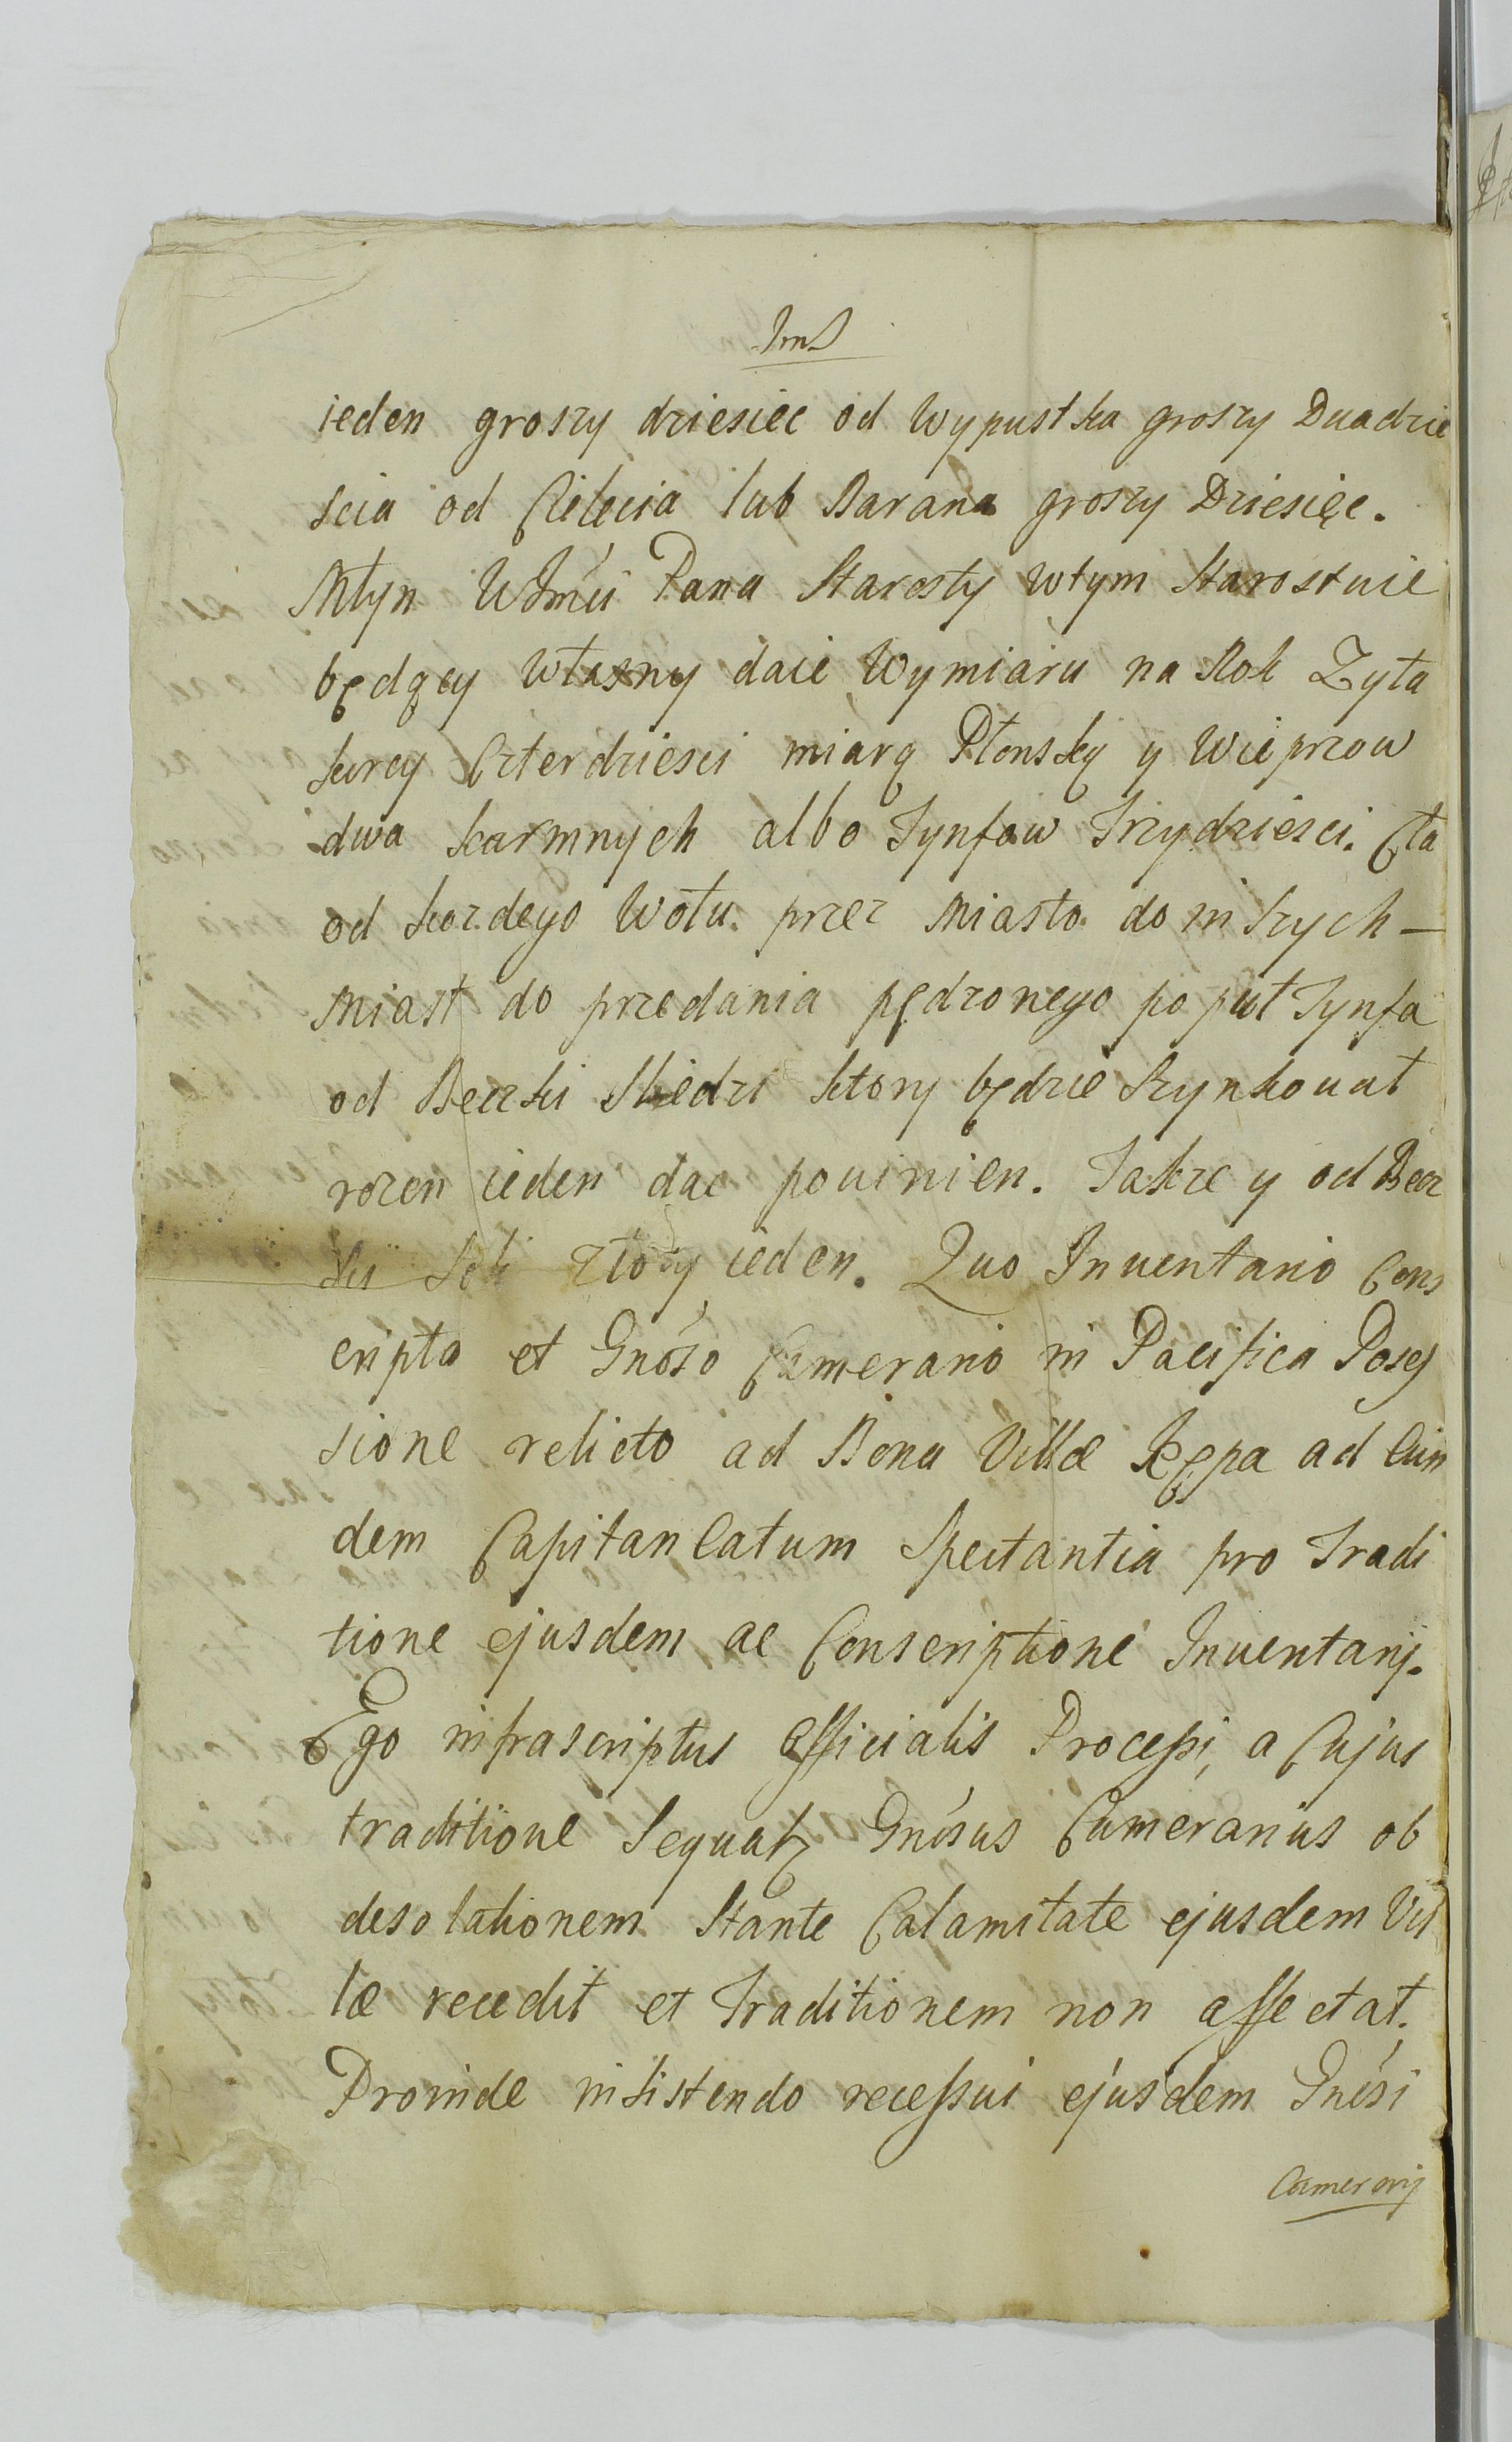 ieden groszy dziesiec od Wypustka groszy Duadzie
scia od Cielecia lub Barana groszy Dziesięc.
Młyn WJmci Pana Starosty wtym Starostwie
będący własny daie Wymiaru na Rok Zyta
korcy Czterdziesci miarą Płonską y Wieprzow
dwa karmnych albo Tynfow Trzydziesci. Cła
od kozdego Wołu przez Miasto do inszych -
Miast do przedania pędzonego po puł Tynfa
od Beczki Sledzi ktory będzie szynkował
rozen ieden dac powinien. Takze y od Becz
ki Soli złoty ieden. Quo Inventario Cons
cripto et Gnoso Camerario in Pacifica Poses
sione relicto ad Bona Villæ Kępa ad Eun
dem Capitaneatum Spectantia pro Tradi
tione ejusdem ac Conscriptione Inventarij.
Ego infrascriptus Officialis Processi, a Cujus
traditione Sequatr Gnosus Camerarius ob
desolationem Stante Calamitate ejusdem Vil
læ recedit et Traditionem non affectat.
Proinde insistendo recessui ejusdem Gnosi
Camerarij